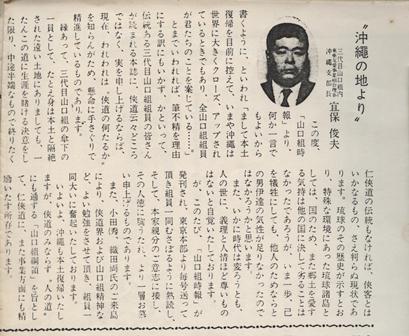 〝沖縄の地より〟
三代目山口組内
宜保 俊夫
この度、
「山口組時
報」より、
何か一言で
もよいから
書くように、といわれ、まして本土
復帰を目前に控えて、いまや沖縄は
世界に大きくクローズ・アップされ
ているときでもあり、全山口組組員
が君たちのことを案じている……。
とまでいわれれば、筆不精を理由
にする訳にもいかず、かといって、
伝統ある三代目山口組組員の皆さん
が読まれる本誌に、侠道云々どころ
ではなく、実を申し上げるならば、
現在、われわれは、侠道の何たるか
を知らんがため、懸命に手さぐりで
精進しているものであります。
縁あって、三代目山口組の傘下の
一員として、たとえ身は本土と隔絶
された遠い土地にありましても、一
たんこの道に生涯を賭ける決意をし
た限り、中途半端なもので終りたく
仁侠道の伝統もなければ、侠客とは
いかなるもの、さえ判らぬ現状であ
ります。琉球のその歴史が示すとお
り、特殊な環境にあった琉球諸島と
しては、国のため、また郷土を愛す
る気持は他の国に決して劣ることは
なかったであろうが、いま一歩、己
を犠牲にしても、他人のためなると
の男伊達の気性が足りなかったので
はなかろうかと思います。
また、いかに時代は変ろうとも、
人の世に、義理と人情ほど尊いもの
はないと自覚いたしております。
このたび、「山口組時報」が
発刊され、東京本部より毎号送って
頂き組員一同むさぼるように熟読し、
そして、本家親分のご意志に接し、
その人徳に強うたれ、より一層お慕
い申し上げるものであります。
また、小田秀、織田両氏のご来島
により、侠道界および山口組精神な
ど、よい勉強をさせて頂き、組員一
同大いに奮起いたしております。
いよいよ、沖縄も本土復帰いたし
ますが、侠道のみならず、人の道に
も通ずる「山口組綱領」を旨とし
て、仁侠道に、また事業方面にも精
励いたす所存であります。